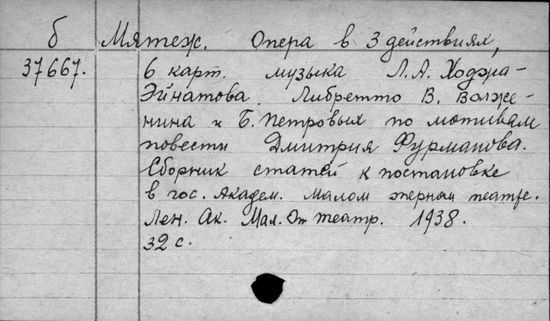 б Мятеж. Опера в 3 действиях,
37667. 6 карт. музыка Л. А. Ходжа-
Эйнатова. Либретто В. Волже-
нина и Б. Петровых по мотивам
повести Дмитрия Фурманова.
Сборник статей к постановке
в гос. Академ. Малом оперном театре.
Лен. Ак. Мал. Оп театр. 1938.
32 с.